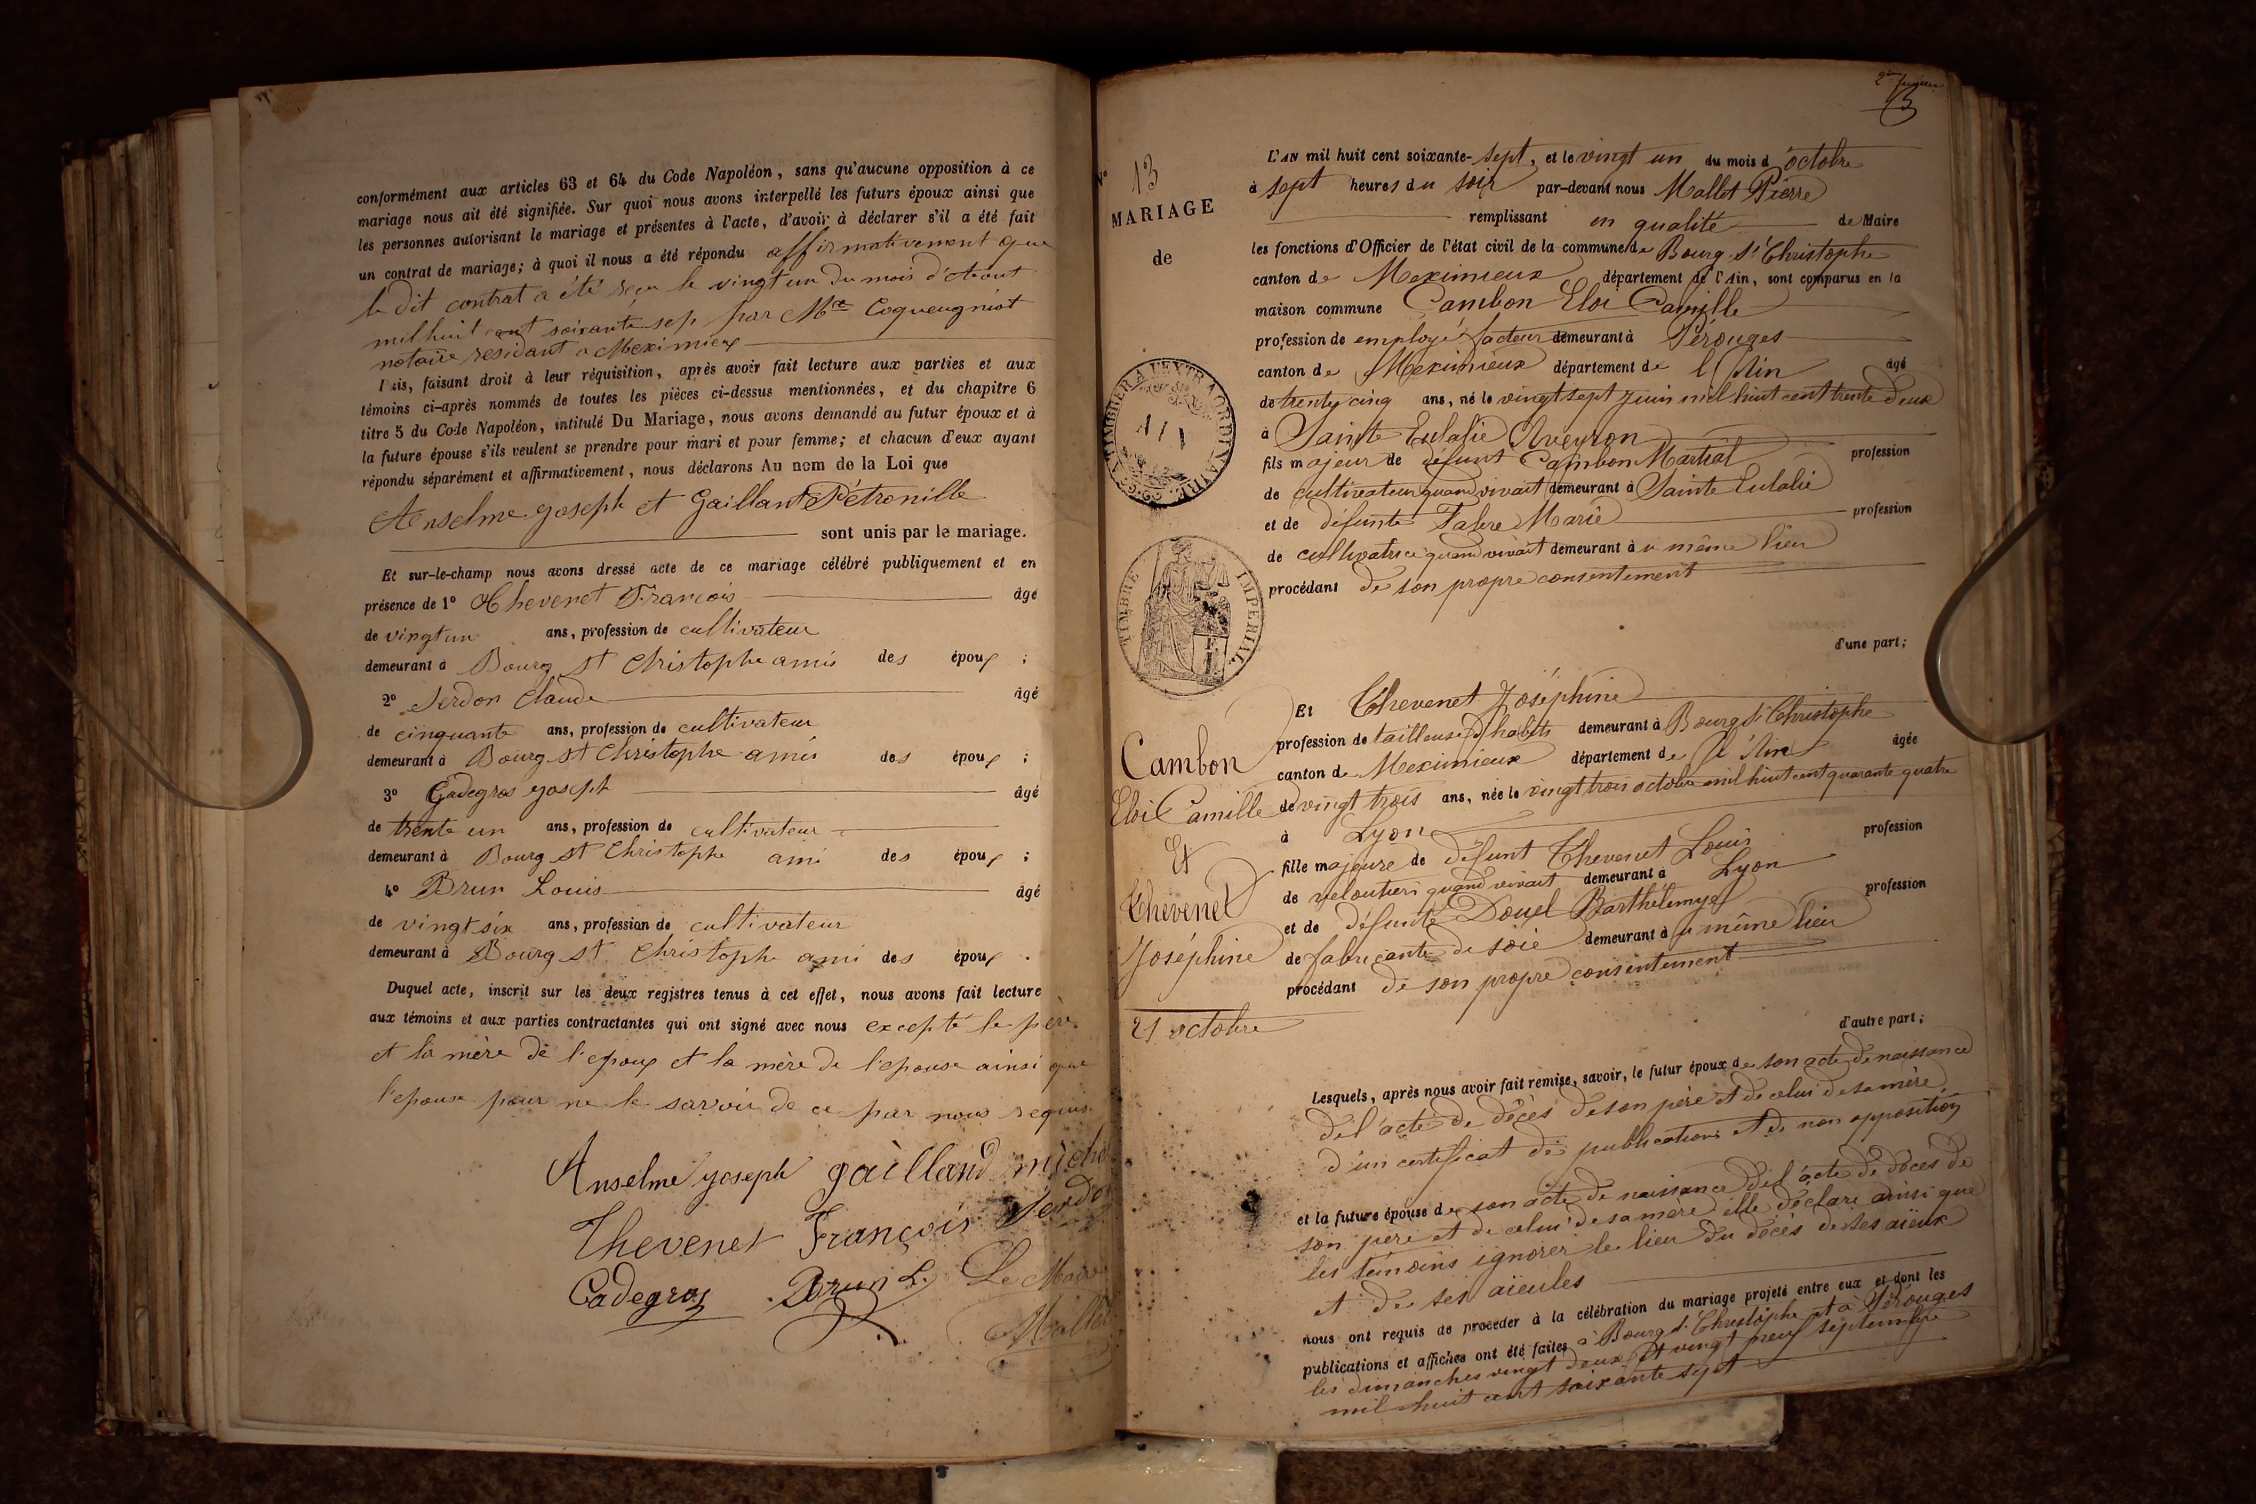 conformément aux articles 63 et 64 du Code Napoléon, sans qu'aucune opposition à ce
mariage nous ait été signifiée. Sur quoi nous avons interpellé les futurs époux ainsi que
les personnes autorisant le mariage et présentes à l'acte, d'avoir à déclarer s'il a été fait
un contrat de mariage; à quoi il nous a été répondu affirmativement que
le dit contrat a été reçu le vingt un du mois d'
mil huit cent soixante sep par Me Coqueugniot
notaire résidant a Meximieux
Puis, faisant droit à leur réquisition, après avoir fait lecture aux parties et aux
témoins ci-après nommés de toutes les pièces ci-dessus mentionnées, et du chapitre 6
titre 5 du Code Napoléon, intitulé Du Mariage, nous avons demandé au futur époux et à
la future épouse s'ils veulent se prendre pour mari et pour femme; et chacun d'eux ayant
répondu séparément et affirmativement, nous déclarons Au nom de la Loi que
Anselme joseph et Gaillant Pétronille
sont unis par le mariage.
Et sur-le-champ nous avons dressé acte de ce mariage célébré publiquement et en
présence de 1° Thevenet François âgé
de vingt un ans, profession de cultivateur
demeurant à Bourg St Christophe ami des époux ;
2° Serdon Claude âgé
de cinquante ans, profession de cultivateur
demeurant à Bourg St Christophe ami des époux ;
3° Gadegros joseph âgé
de trente un ans, profession de cultivateur
demeurant à Bourg St Christophe ami des époux ;
4° Brun Louis âgé
de vingt six ans, profession de cultivateur
demeurant à Bourg St Christophe ami des époux .
Duquel acte, inscrit sur les deux registres tenus à cet effet, nous avons fait lecture
aux témoins et aux parties contractantes qui ont signé avec nous excepté le père
et la mère de l'epoux et la mère de l'epouse ainsi que
l'epouse pour ne le savoir de ce par nous requis
Anselme joseph gailland miche
Thevenet François Serdon
Cadegros Brun L. Le Maire
Mallet
2eme
13
N° 13
MARIAGE
de
A TIMBRER A L'EXTRAORDINAIRE
TIMBRE IMPÉRIAL
Cambon
Eloi Camille
Et
Thevenet
Joséphine
21 octobre
L'AN mil huit cent soixante-sept, et le vingt un du mois d'octobre
à sept heures du soir par-devant nous Mallet Pierre
remplissant en qualité de Maire
les fonctions d'Officier de l'état civil de la commune de Bourg St Christophe
canton de Meximieux département de l'Ain, sont comparus en la
maison commune Cambon Eloi Camille
profession de employé facteur demeurant à Pérouges
canton de Meximieux département de l'Ain âgé
de trente cinq ans, né le vingt sept juin mil huit cent trente deux
à Sainte Eulalie Aveyron
fils majeur de défunt Cambon Martial profession
de cultivateur quand vivait demeurant à Sainte Eulalie
et de défunte Fabre Marie profession
de cultivatrice quand vivait demeurant à u même lieu
procédant de son propre consentement
d'une part;
Et Thevenet Joséphine
profession de tailleuse d'habits demeurant à Bourg St Christophe
canton de Meximieux département de l'Ain âgée
de vingt trois ans, née le vingt trois octobre mil huit cent quarante quatre
à Lyon
fille majeure de défunt Thevenet Louis profession
de veloutier quand vivait demeurant à Lyon
et de défunte Douel Barthélemye profession
de fabricante de soie demeurant à u même lieu
procédant de son propre consentement
d'autre part;
Lesquels, après nous avoir fait remise, savoir, le futur époux de son acte de naissance
de l'acte de décès de son père et de celui de sa mère
d'un certificat de publications et de non opposition
et la future épouse de son acte de naissance de l'acte de décès de
son père et de celui de sa mère elle déclare ainsi que
les témoins ignorer le lieu du décès de ses aïeux
et de ses aïeules
nous ont requis de procéder à la célébration du mariage projeté entre eux et dont les
publications et affiches ont été faites à Bourg St Christophe et à Pérouges
les dimanches vingt deux et vingt neuf septembre
mil huit cent soixante sept